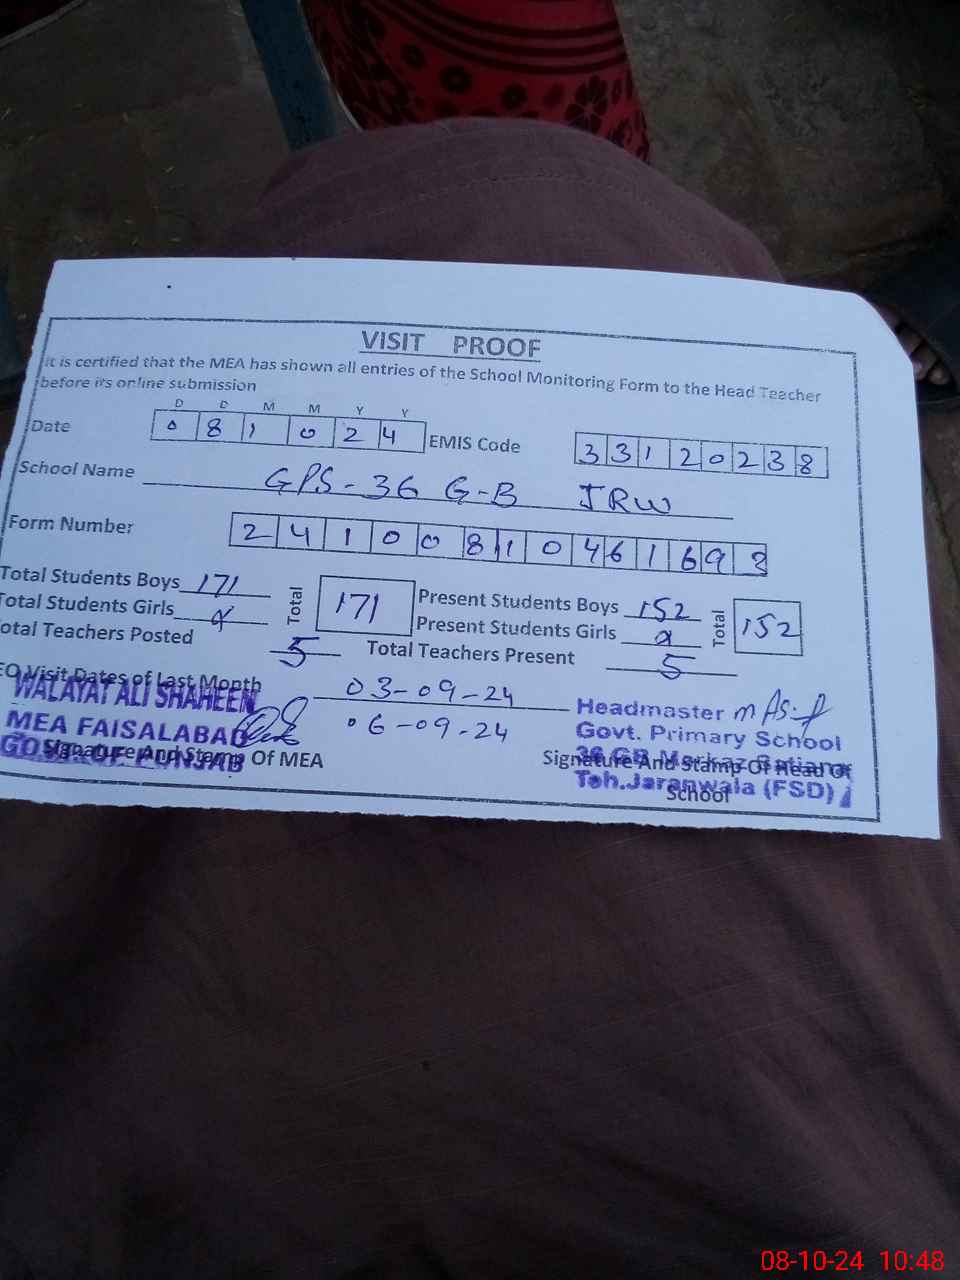 VISIT PROOF
It is certified that the MEA has shown all entries of the School Monitoring Form to the Head Teacher
before its online submission
D D M M Y Y
Date 0 8 1 0 2 4 EMIS Code 3 3 1 2 0 2 3 8
School Name GPS-36 G-B JRW
Form Number 2 4 1 0 0 8 1 0 4 6 1 6 9 8
Total Students Boys 171 Total 171 Present Students Boys 152 Total 152
Total Students Girls Present Students Girls
Total Teachers Posted 5 Total Teachers Present 5
Visit Dates of Last Month 03-09-24
06-09-24
WALAYAT ALI SHAHEEN
MEA FAISALABAD
GOVT. OF PUNJAB
Signature And Stamp Of MEA
Headmaster
Govt. Primary School
36 GB Markaz
Teh.Jaranwala (FSD)
Signature And Stamp Of Head Of
School
08-10-24 10:48